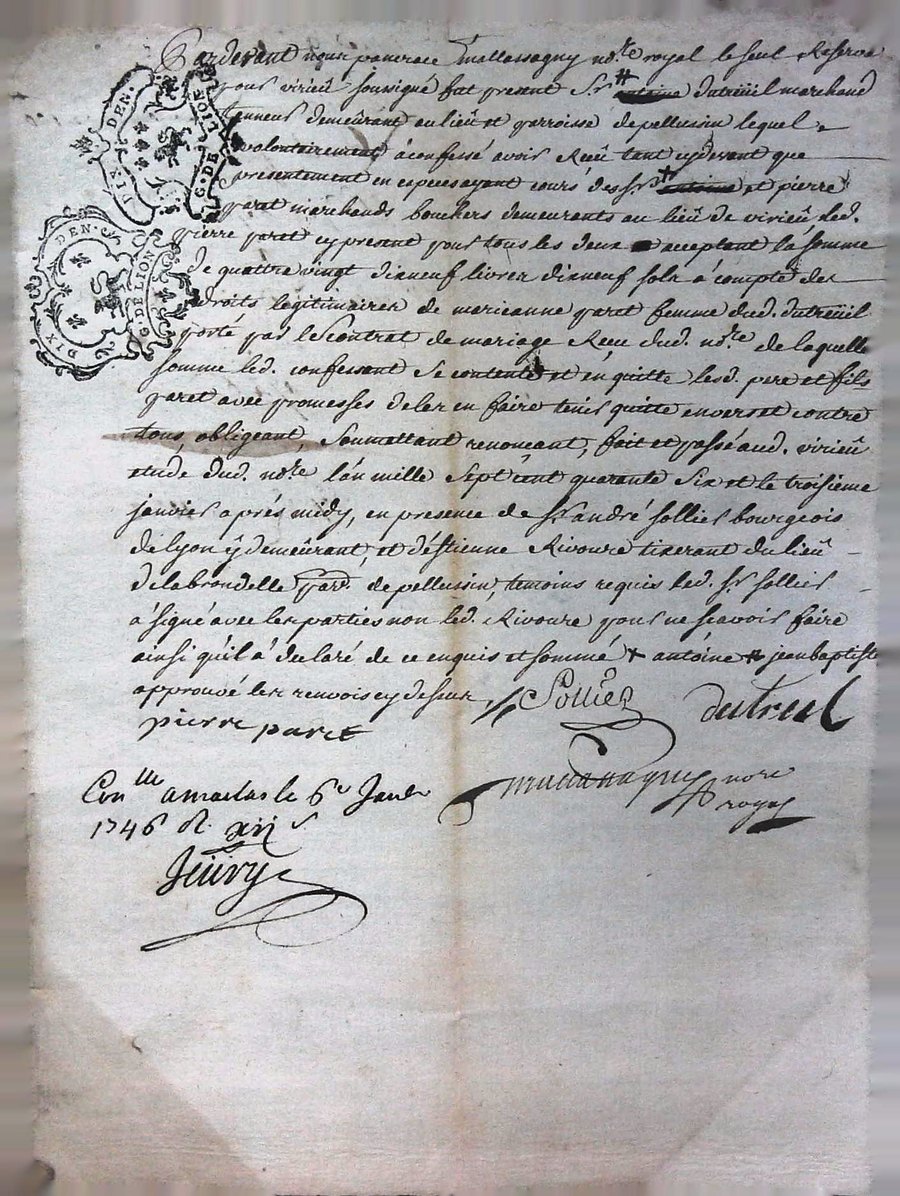 Pardevant nous pancrace mallassagny no.re royal le seul Reservé
pour virieü soussigné fut present S.r # antoine dutreuil marchand
tanneur demeurant au lieü et parroisse de pellussin lequel
volontairement a confessé avoir Reçü tant cy devant que
presentement en especes ayant cours des Srs + antoine et pierre
paret marchands bouchers demeurants au lieü de virieü led.
pierre paret cy present pour tous les deux acceptant la somme
de quattre vingt dixneuf livres dixneuf sols a compte des
droits legitimaires de marieanne paret femme dud. dutreuil
porté par le Contrat de mariage Receu dud. no.re de laquelle
somme led. confessant se contente et en quitte lesd. pere et fils
paret avec promesses de les en faire tenir quitte envers et contre
tous, obligeant, Soumattant, renonceant, fait et passé aud. virieü
etude dud. no.re l'an mille Sept cent quarante Six et le troisieme
janvier aprés midy, en presence de Sr andré Sollier bourgeois
de lyon ÿ demeürant, et d'éstienne Rivoire tixerant du lieü
de la brondelle parr. de pellussin, temoins requis led. Sr Sollier
a signé avec les parties non led. Rivoire pour ne scavoir faire
ainsi qu'il a declaré de ce enquis et sommé + antoine # jean baptiste
approuvé les renvois cy dessus
Sollier dutreul
pierre paret
mallassagny nore
royal
Con.lle a maclas le 6e Janv.
1746 R. xii s.
DIX DEN.
G. DE LION
DIX DEN.
G. DE LION